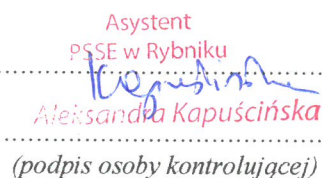 Asystent
PSSE w Rybniku
Aleksandra Kapuścińska
(podpis osoby kontrolującej)